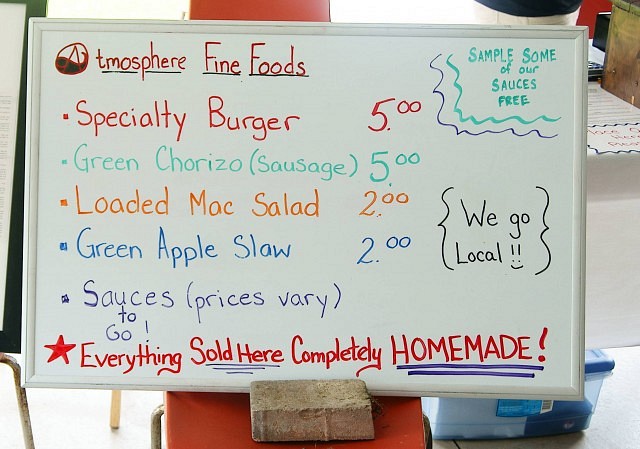 Atmosphere Fine Foods
SAMPLE SOME
of our
SAUCES
FREE
• Specialty Burger 5.00
• Green Chorizo (Sausage) 5.00
• Loaded Mac Salad 2.00
• Green Apple Slaw 2.00
We go
Local!!
• Sauces (prices vary)
to
Go!
★ Everything Sold Here Completely HOMEMADE!